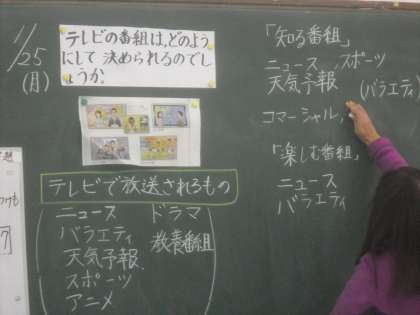 1/25
(月)
テレビの番組は,どのよう
にして決められるのでし
ょうか。
テレビで放送されるもの
ニュース　ドラマ
バラエティ　教養番組
天気予報
スポーツ
アニメ
「知る番組」
ニュース　スポーツ
天気予報　(バラエティ)
コマーシャル
「楽しむ番組」
ニュース
バラエティ